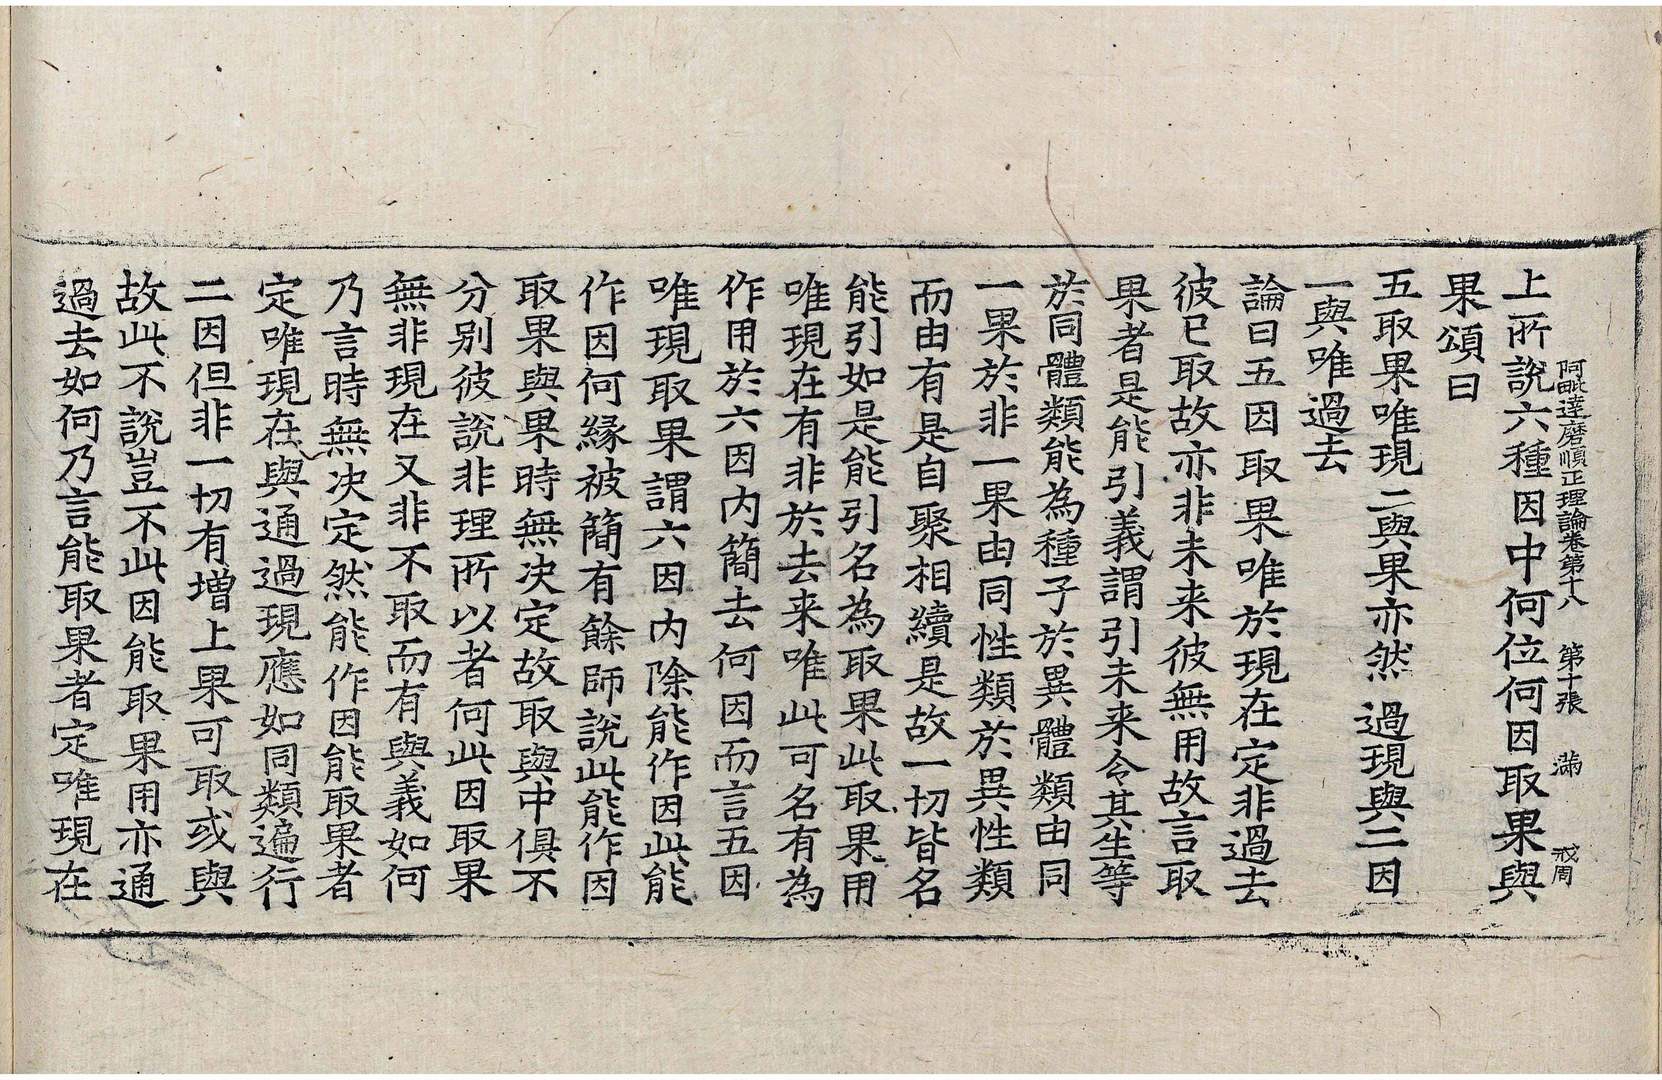 阿毗達磨順正理論卷第十八　第十張　滿　戒周
上所說六種因中何位何因取果與
果頌曰
五取果唯現二與果亦然過現與二因
一與唯過去
論曰五因取果唯於現在定非過去
彼已取故亦非未来彼無用故言取
果者是能引義謂引未来令其生等
於同體類能為種子於異體類由同
一果於非一果由同性類於異性類
而由有是自聚相續是故一切皆名
能引如是能引名為取果此取果用
唯現在有非於去来唯此可名有為
作用於六因內簡去何因而言五因
唯現取果謂六因內除能作因此能
作因何緣被簡有餘師說此能作因
取果與果時無决定故取與中俱不
分別彼說非理所以者何此因取果
無非現在又非不取而有與義如何
乃言時無决定然能作因能取果者
定唯現在與通過現應如同類遍行
二因但非一切有增上果可取或與
故此不說豈不此因能取果用亦通
過去如何乃言能取果者定唯現在